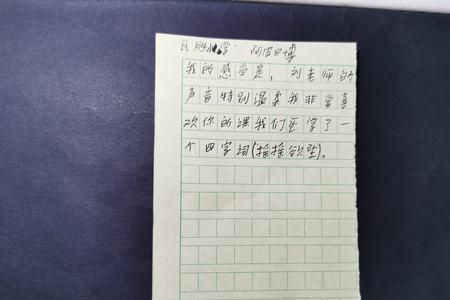 民胜小学
我的感受是，刘老师的
声音特别温柔我非常喜
欢你的课我们还学了一
个四字词(摇摇欲坠)。